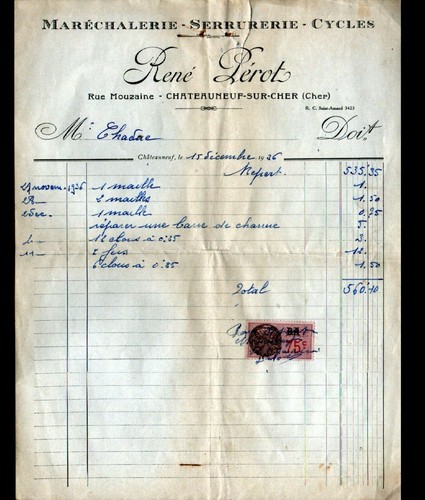 MARÉCHALERIE - SERRURERIE - CYCLES
René Pérot
Rue Mouzaine - CHATEAUNEUF-SUR-CHER (Cher)
R. C. Saint-Amand 3423
M. Doit
Châteauneuf, le 15 décembre 1936
Report 535,35
27 novem. 1936 1 maille 1.
28 2 mailles 1,50
2 déc. 1 maille 0,75
réparer une barre de 5.
12 clous à 3.
11 2 fers 12.
6 clous à 1,50
Total 560,10
75c